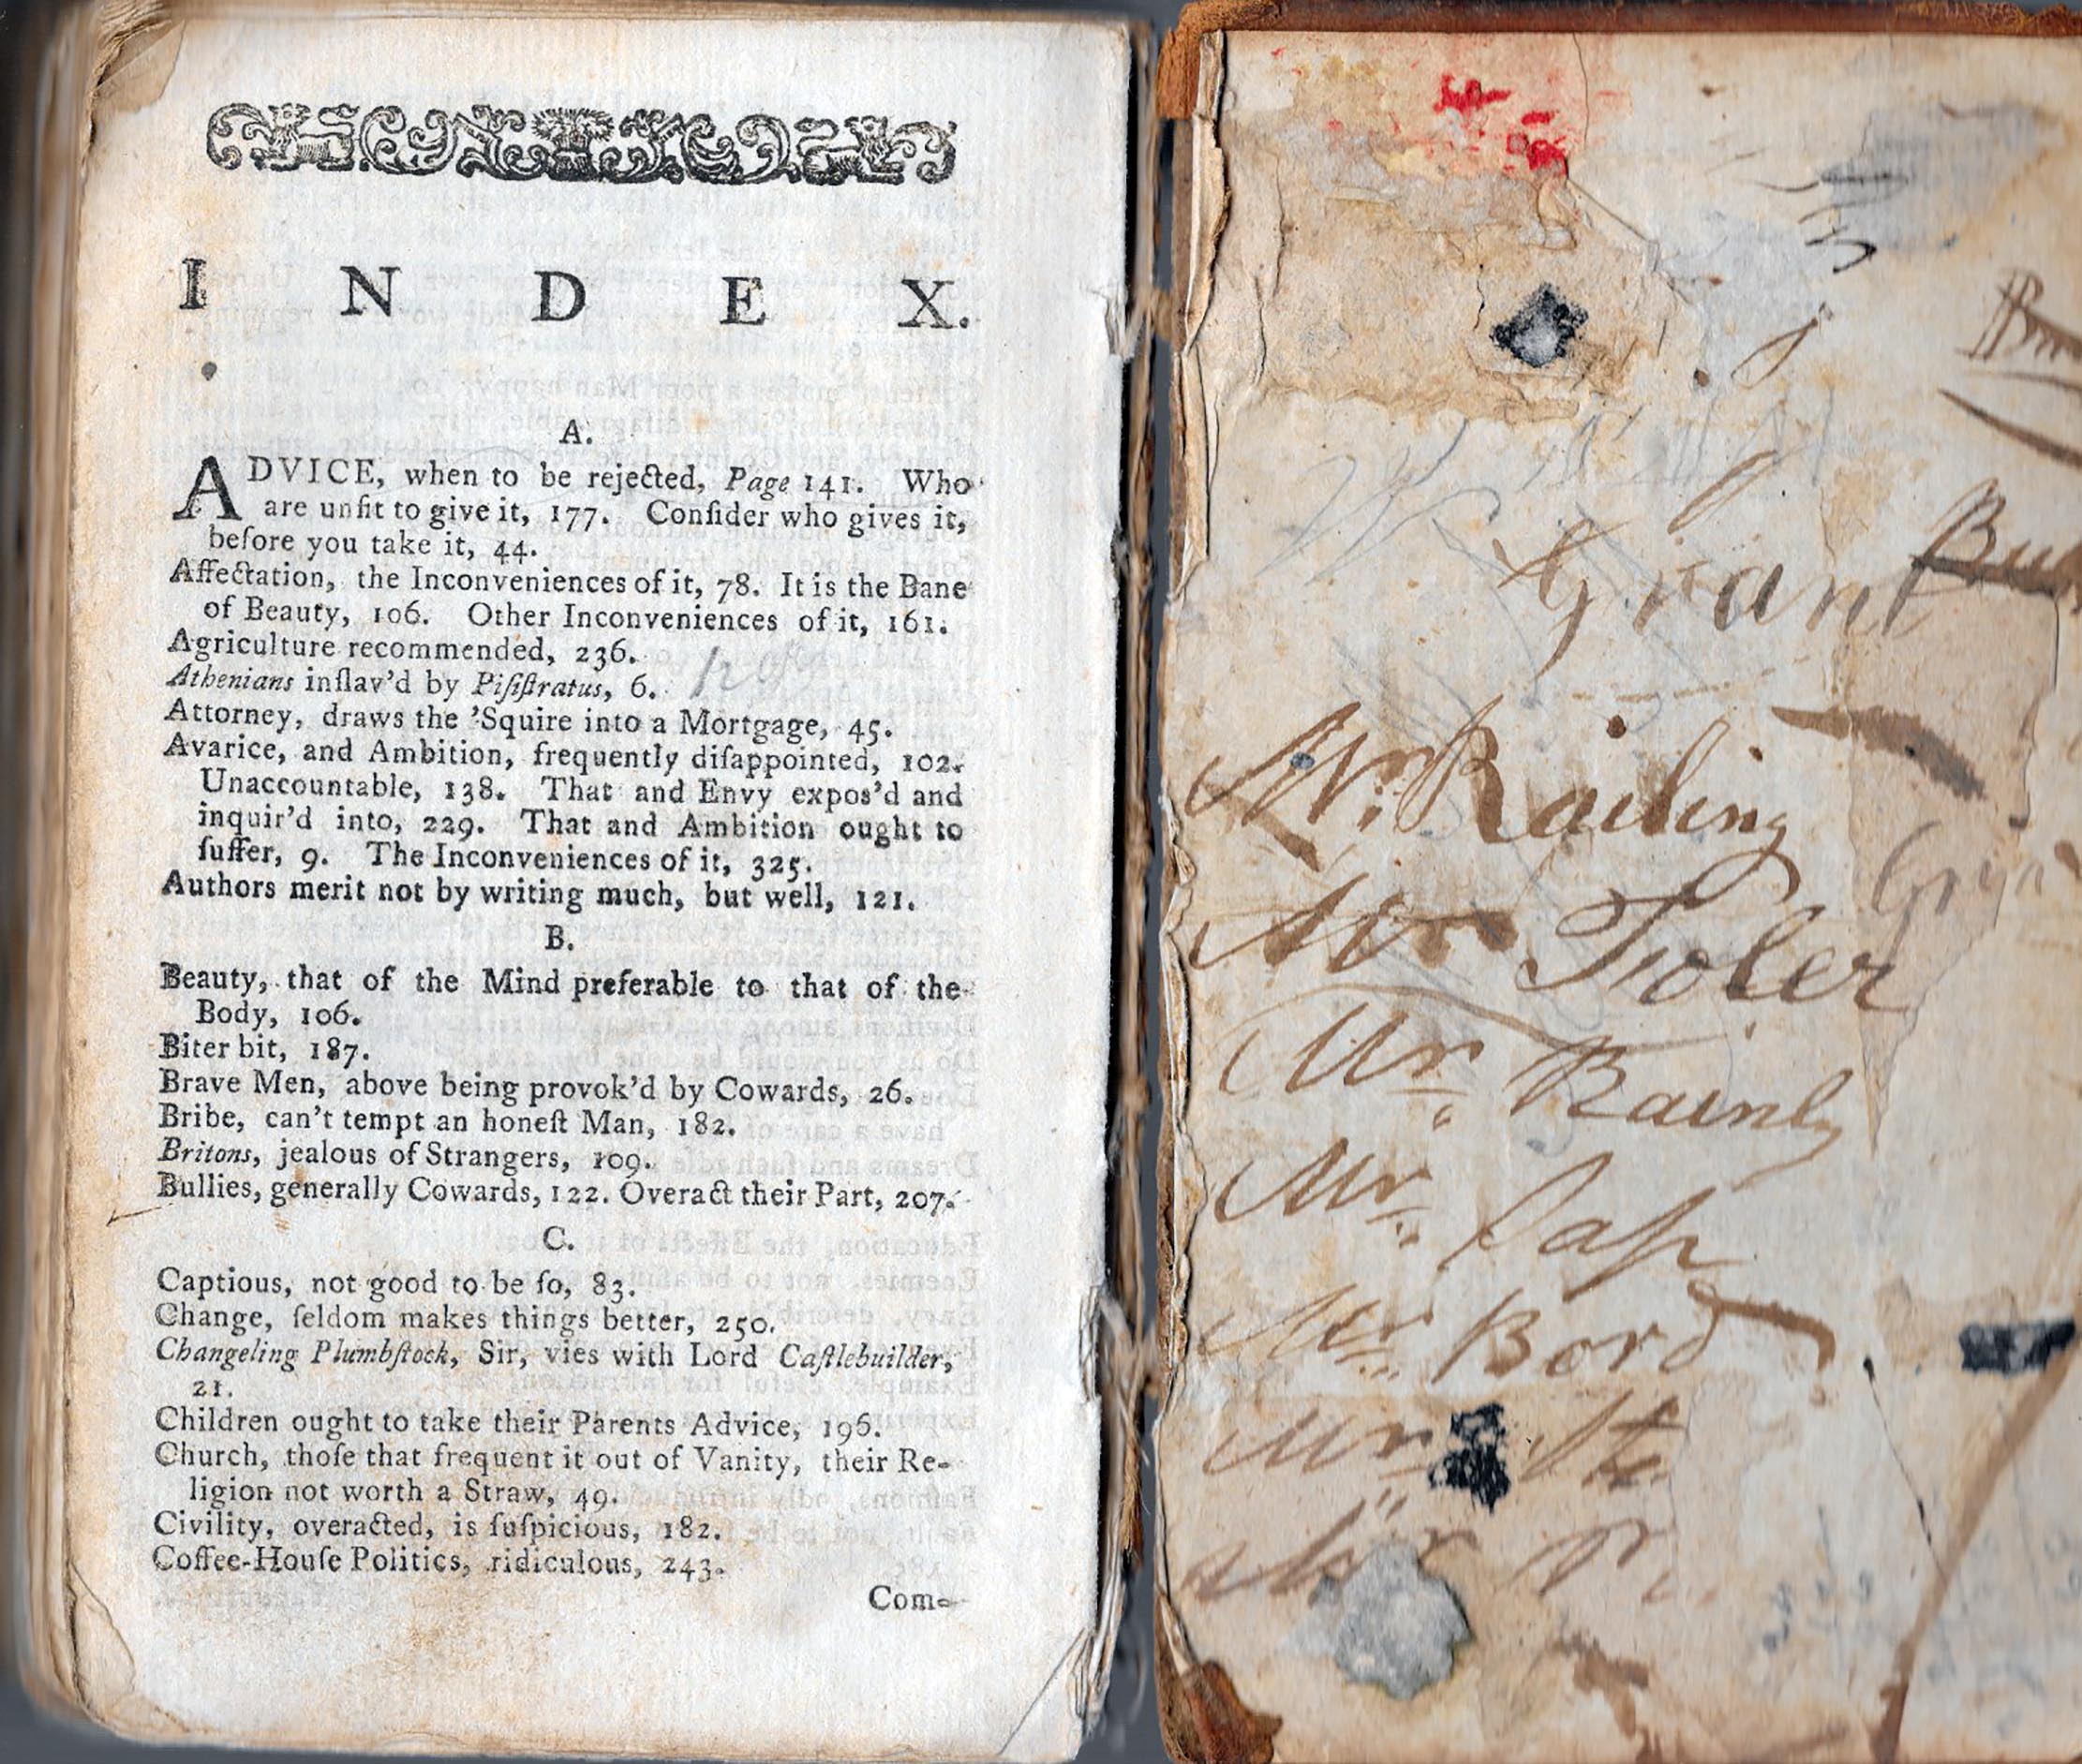 INDEX.
A.
ADVICE, when to be rejected, Page 141. Who
are unfit to give it, 177. Conſider who gives it,
before you take it, 44.
Affectation, the Inconveniences of it, 78. It is the Bane
of Beauty, 106. Other Inconveniences of it, 161.
Agriculture recommended, 236.
Athenians inſlav'd by Piſiſtratus, 6.
Attorney, draws the 'Squire into a Mortgage, 45.
Avarice, and Ambition, frequently diſappointed, 102.
Unaccountable, 138. That and Envy expos'd and
inquir'd into, 229. That and Ambition ought to
ſuffer, 9. The Inconveniences of it, 325.
Authors merit not by writing much, but well, 121.
B.
Beauty, that of the Mind preferable to that of the
Body, 106.
Biter bit, 187.
Brave Men, above being provok'd by Cowards, 26.
Bribe, can't tempt an honeſt Man, 182.
Britons, jealous of Strangers, 109.
Bullies, generally Cowards, 122. Overact their Part, 207.
C.
Captious, not good to be ſo, 83.
Change, ſeldom makes things better, 250.
Changeling Plumbſtock, Sir, vies with Lord Caſtlebuilder,
21.
Children ought to take their Parents Advice, 196.
Church, thoſe that frequent it out of Vanity, their Re-
ligion not worth a Straw, 49.
Civility, overacted, is ſuſpicious, 182.
Coffee-Houſe Politics, ridiculous, 243.
Com-
Grant
Mr. Railing
Mr Toler
Mr.
Mr.
Mr. Bord
Mr.
Mr